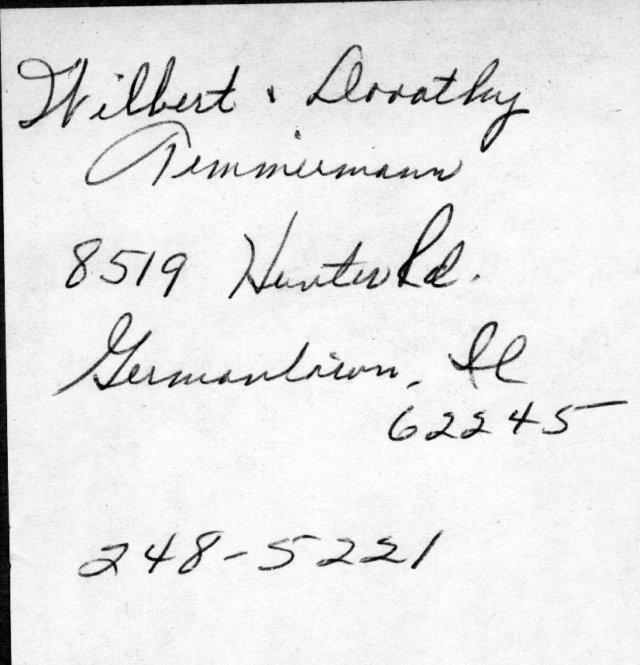 Wilbert & Dorothy
Timmermann
8519 Hunter Rd.
Germantown, Il
62245
248-5221